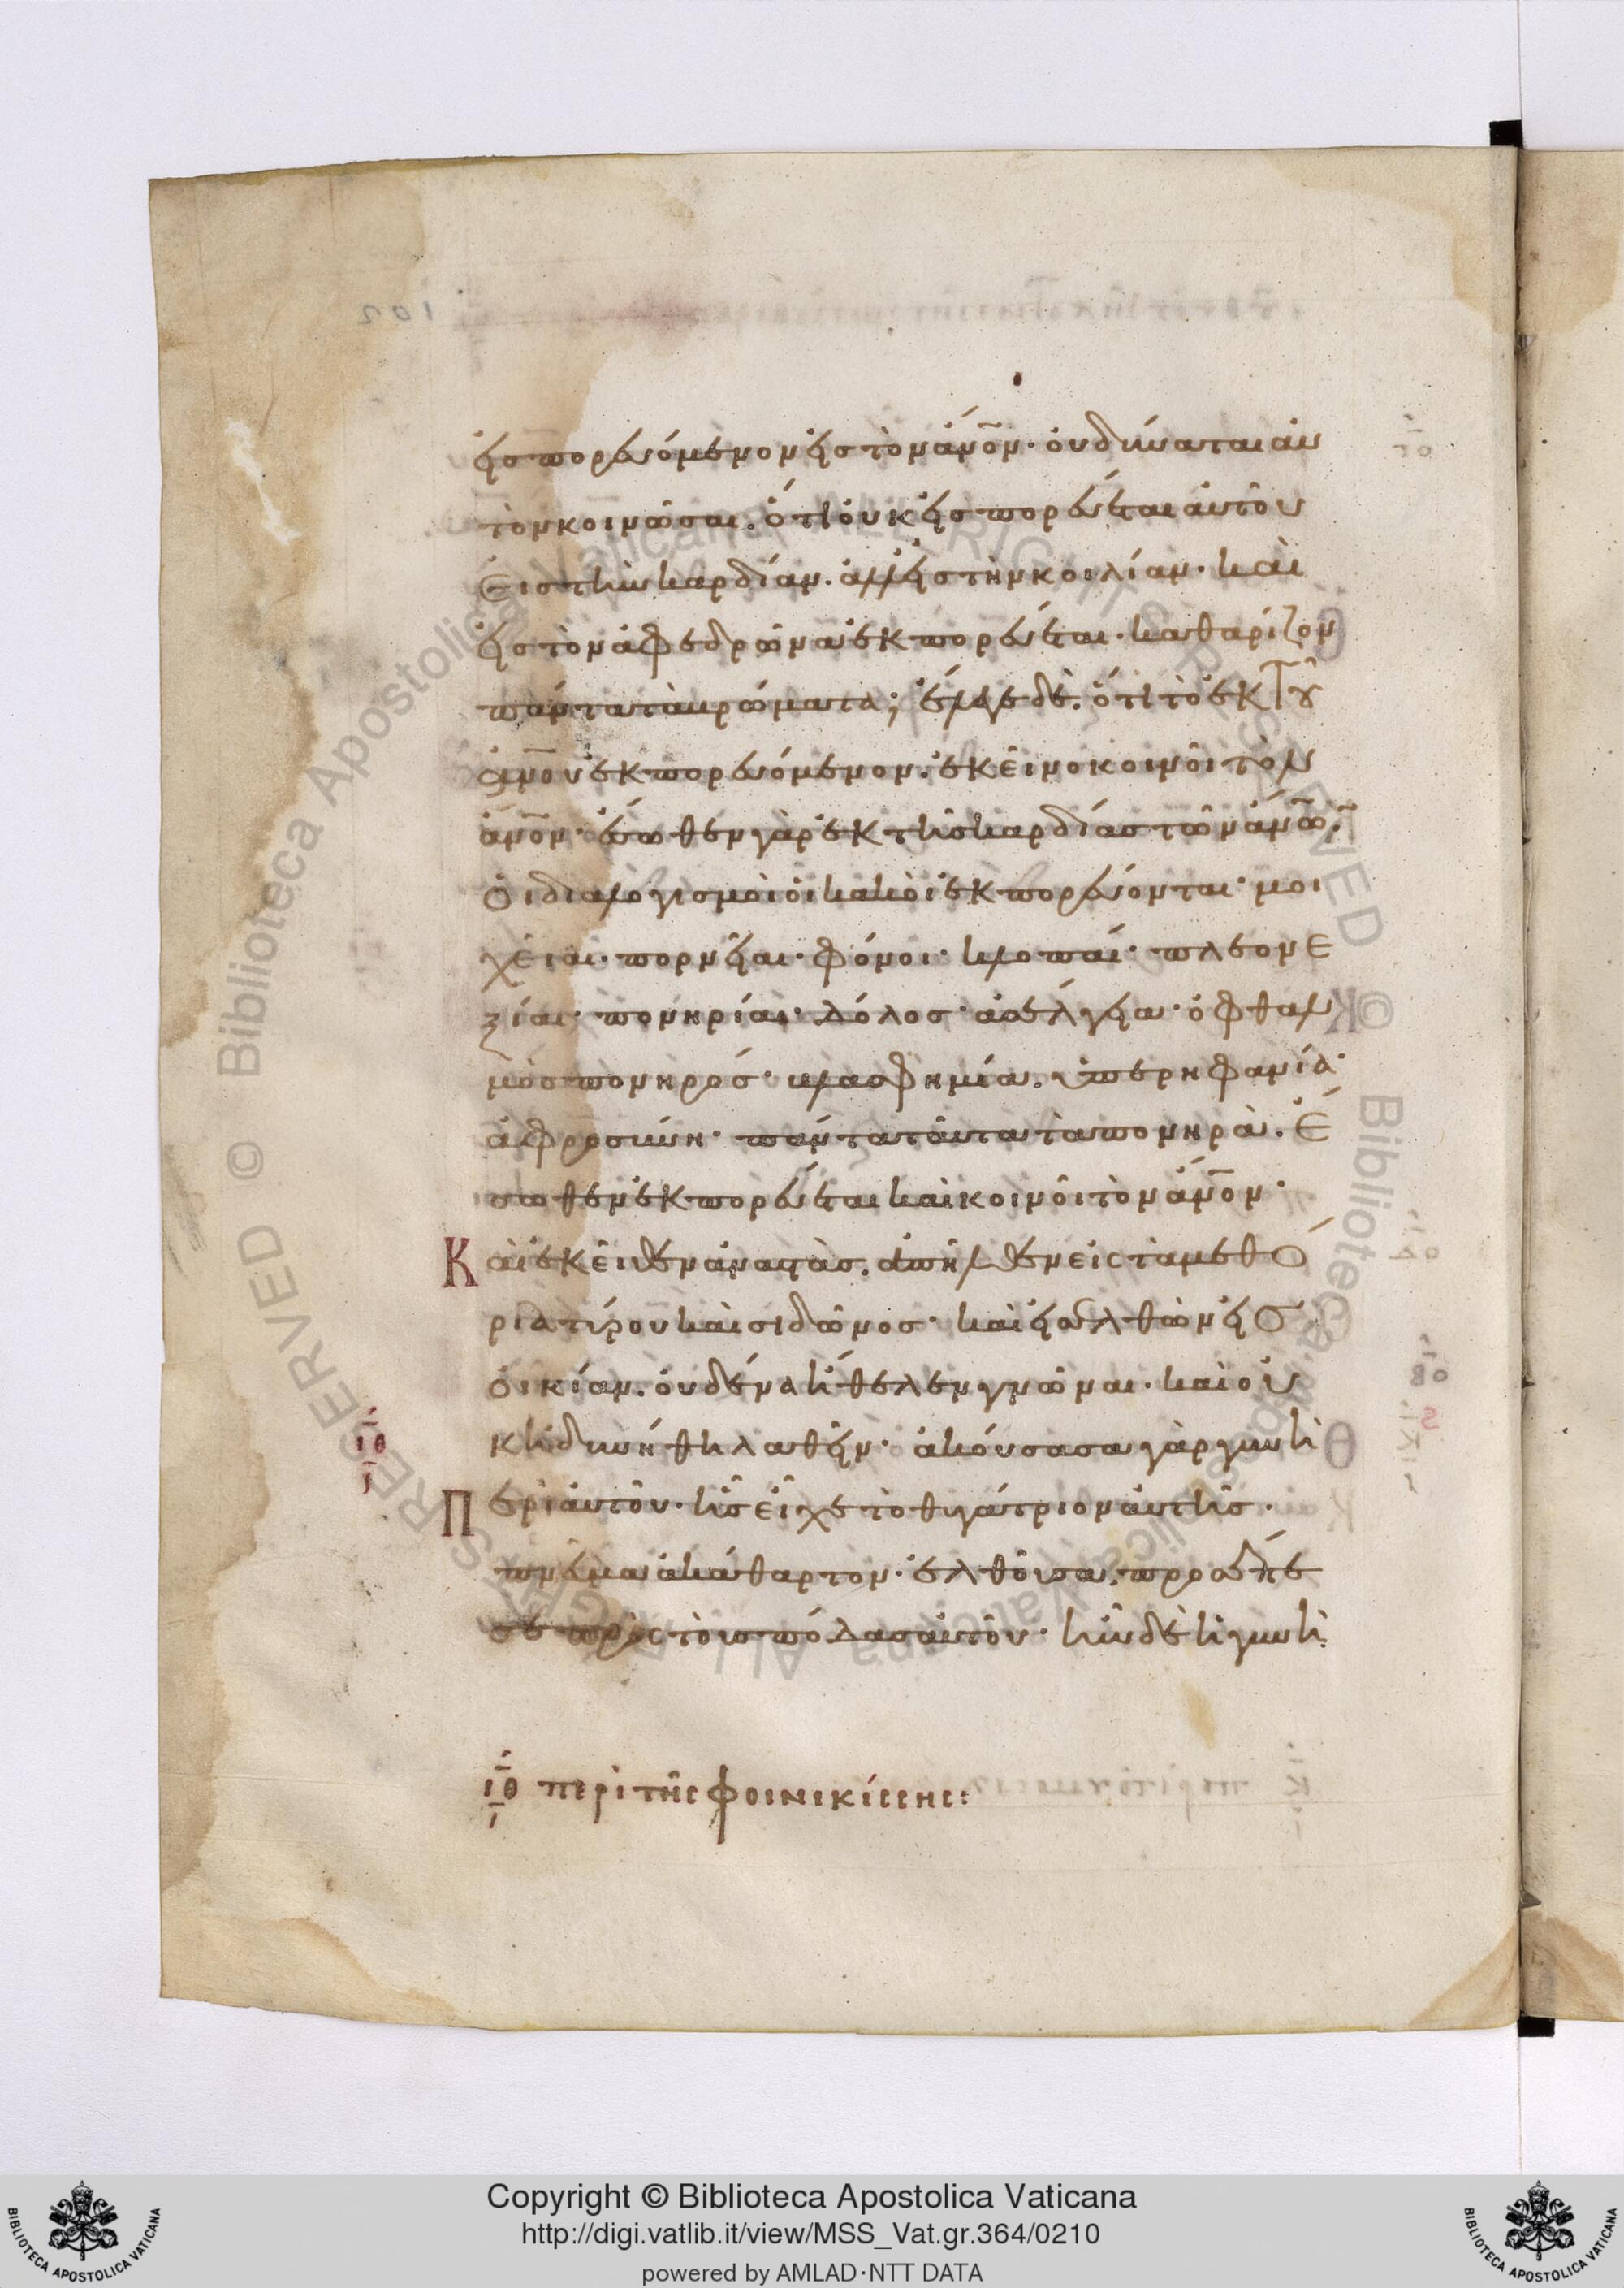 εἰσπορευόμενον εἰς τὸν ἄνον· οὐ δύναται αὐ
τὸν κοινῶσαι. ὅτι οὐκ εἰσπορεύεται αὐτοῦ
εἰς τὴν καρδίαν. ἀλλ εἰς τὴν κοιλίαν· καὶ
εἰς τὸν ἀφεδρῶνα ἐκπορεύεται· καθαρίζον
πάντα τὰ βρώματα; ἔλεγε δὲ. ὅτι τὸ ἐκ τοῦ
ἀνου ἐκπορευόμενον. ἐκεῖνο κοινοῖ τὸν
ἄνον· ἔσωθεν γὰρ ἐκ τῆς καρδίας τῶν ἀνων.
οἱ διαλογισμοὶ οἱ κακοὶ ἐκπορεύονται· μοι
χεῖαι· πορνεῖαι· φόνοι· κλοπαί· πλεονε
ξίαι· πονηρίαι· δόλος· ἀσέλγεια· ὀφθαλ
μὸς πονηρός· βλασφημία. ὑπερηφανία·
ἀφροσύνη· πάντα ταῦτα τὰ πονηρὰ. ἔ
σωθεν ἐκπορεύεται καὶ κοινοῖ τὸν ἄνον·
Καὶ ἐκεῖθεν ἀναστὰς. ἀπῆλθεν εἰς τὰ μεθό
ρια τύρου καὶ σιδῶνος· καὶ εἰσελθὼν εἰς
οἰκίαν. οὐδένα ἤθελεν γνῶναι· καὶ οὐ
κ ἠδυνήθη λαθεῖν· ἀκούσασα γὰρ γυνὴ
ιθ
Περὶ αὐτοῦ· ἧς εἶχε τὸ θυγάτριον αὐτῆς.
πνεῦμα ἀκάθαρτον· ἐλθοῦσα. προσέπε
σε πρὸς τοὺς πόδας αὐτοῦ· ἦν δὲ ἡ γυνὴ
ιθ περὶ τῆς φοινικίσσης:
Copyright © Biblioteca Apostolica Vaticana
http://digi.vatlib.it/view/MSS_Vat.gr.364/0210
powered by AMLAD·NTT DATA